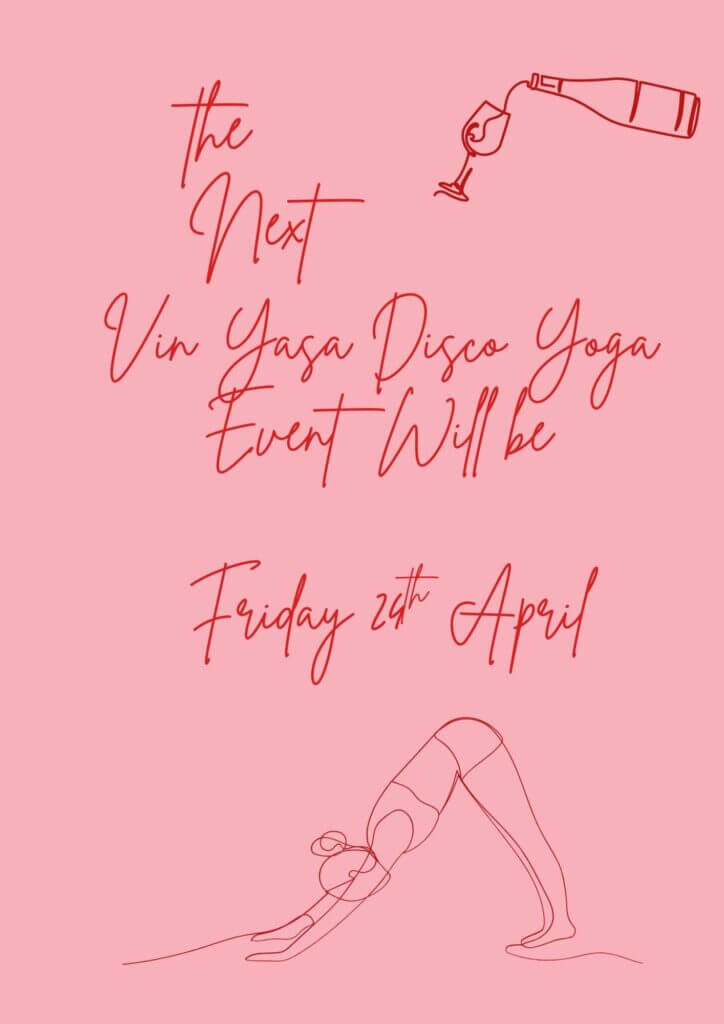 the
Next
Vin Yasa Disco Yoga
Event Will be
Friday 24th April